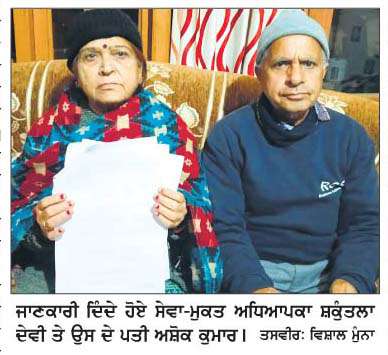 ਜਾਣਕਾਰੀ ਦਿੰਦੇ ਹੋਏ ਸੇਵਾ-ਮੁਕਤ ਅਧਿਆਪਕਾ ਸ਼ਕੁੰਤਲਾ
ਦੇਵੀ ਤੇ ਉਸ ਦੇ ਪਤੀ ਅਸ਼ੋਕ ਕੁਮਾਰ। ਤਸਵੀਰ: ਵਿਸ਼ਾਲ ਮੁੰਨਾ